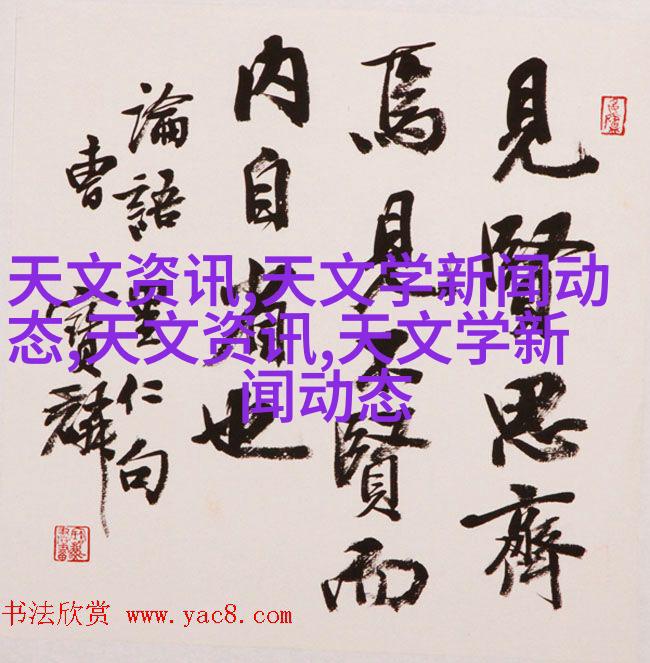 見賢思齊
焉見不賢而
内自省也
論語里仁句
曹寶麟
天文资讯,天文学新闻动
态,天文资讯,天文学新
闻动态
书法欣赏 www.yac8.com